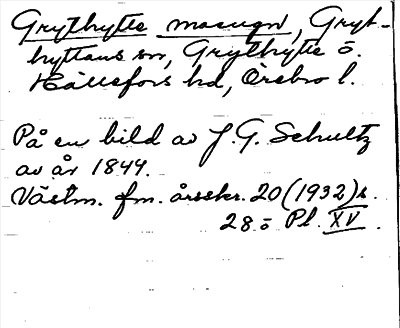 Grythytte masugn, Gryt-
hyttans sn, Grythytte ö.
Hällefors hd, Örebro l.
På en bild av J. G. Schultz
av år 1849.
Västm. fm. årsskr. 20 (1932) s.
28 o Pl. XV.